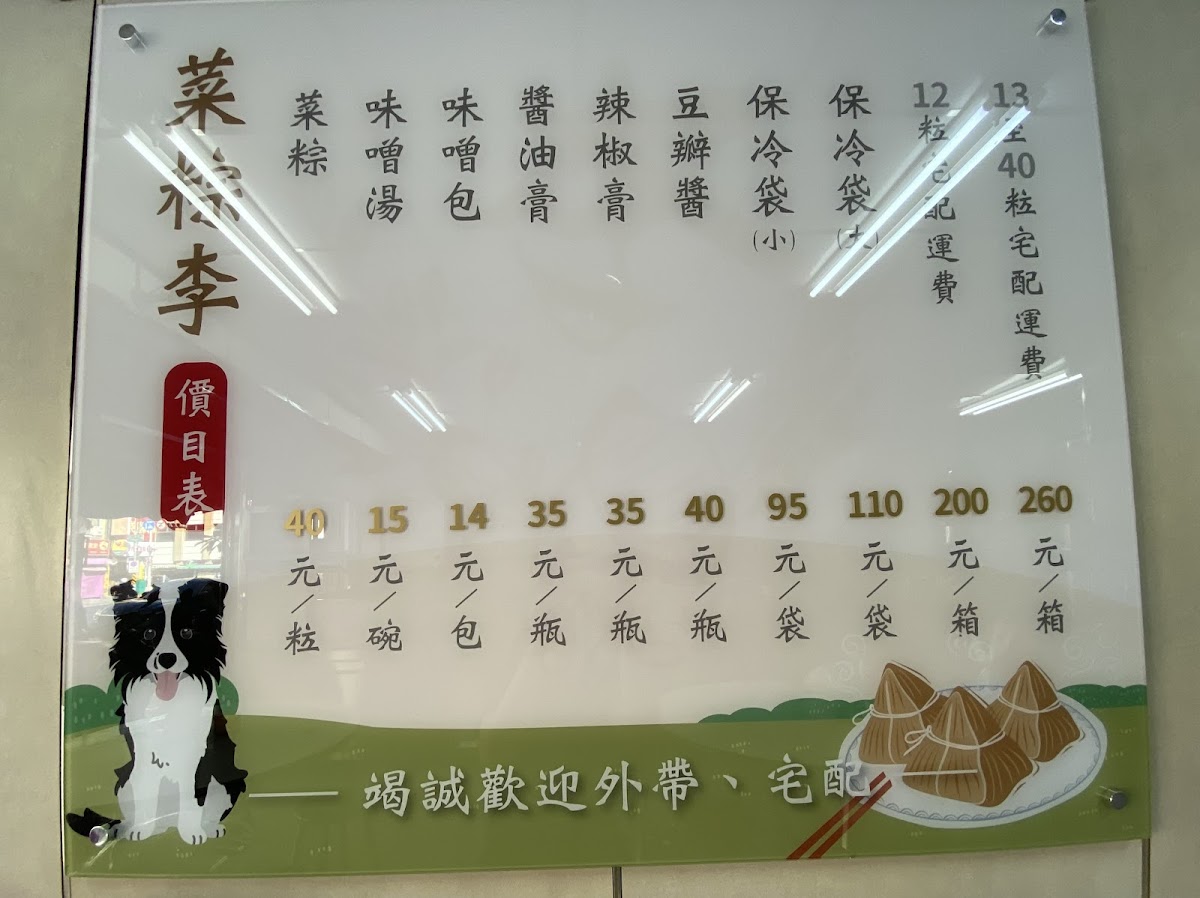 菜粽李
價目表
菜粽
40元/粒
味噌湯
15元/碗
味噌包
14元/包
醬油膏
35元/瓶
辣椒膏
35元/瓶
豆瓣醬
40元/瓶
保冷袋(小)
95元/袋
保冷袋(大)
110元/袋
12粒宅配運費
200元/箱
13至40粒宅配運費
260元/箱
竭誠歡迎外帶、宅配